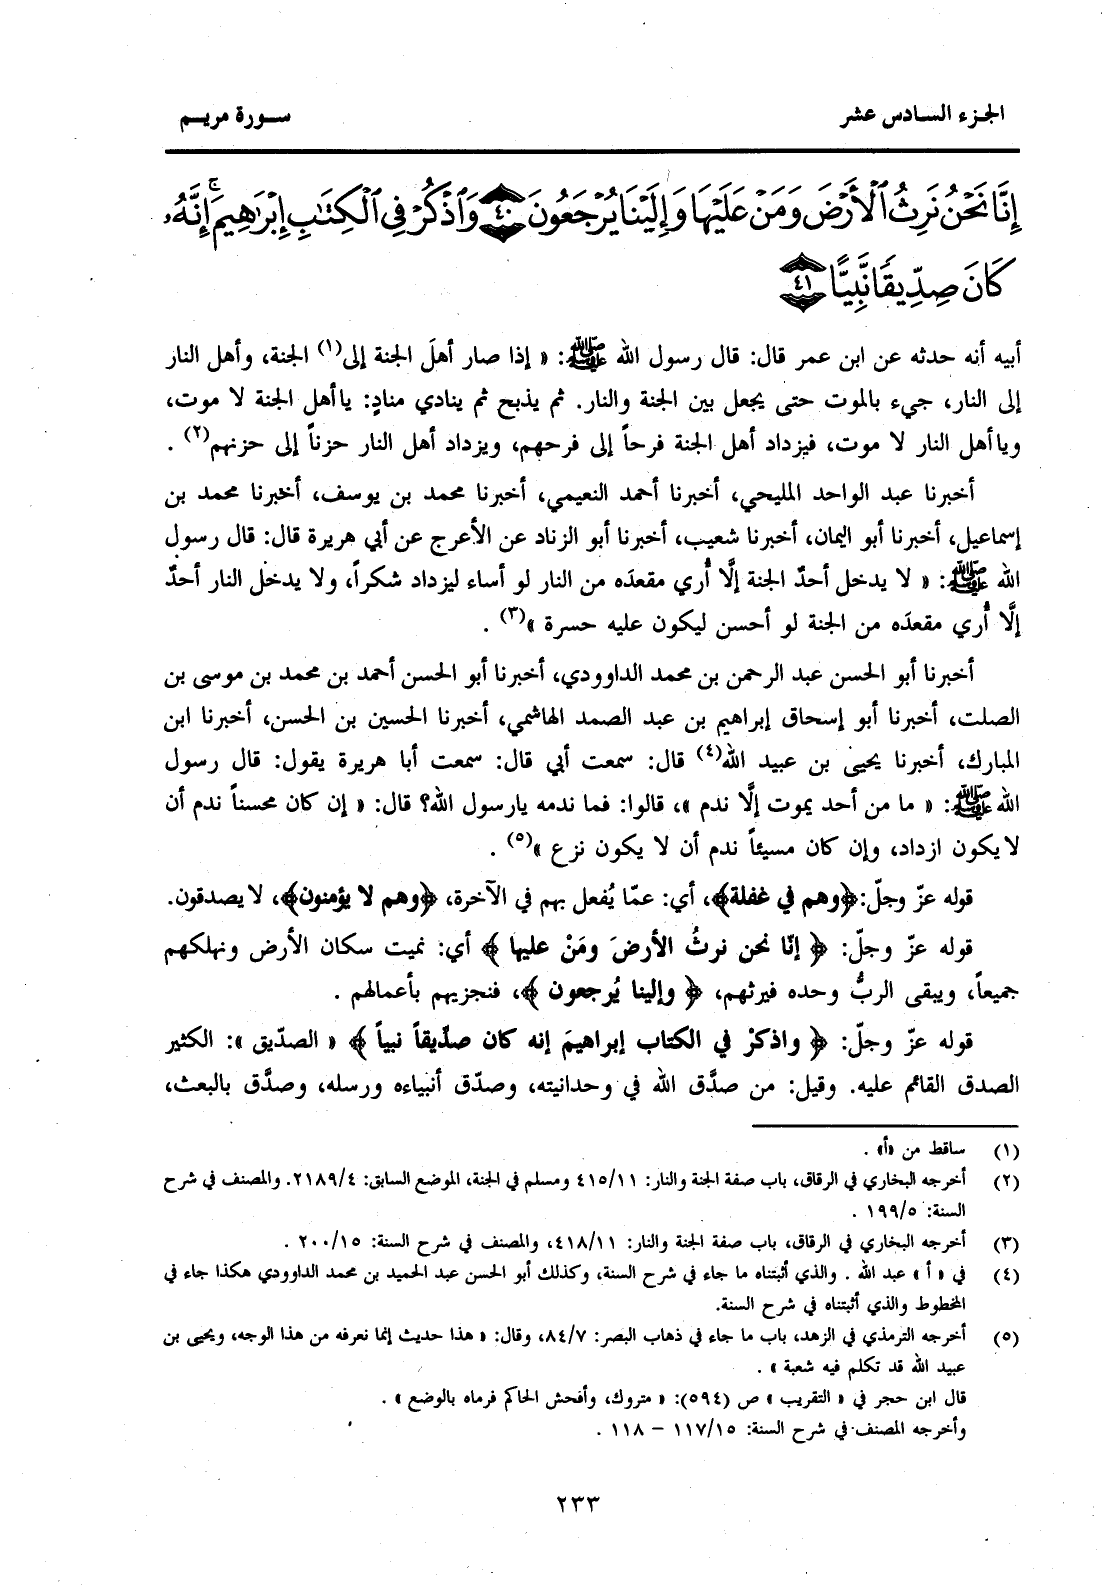 الجزء السادس عشر
سورة مريم
إِنَّا نَحْنُ نَرِثُ ٱلْأَرْضَ وَمَنْ عَلَيْهَا وَإِلَيْنَا يُرْجَعُونَ ٤٠ وَٱذْكُرْ فِى ٱلْكِتَٰبِ إِبْرَٰهِيمَ ۚ إِنَّهُۥ
كَانَ صِدِّيقًا نَّبِيًّا ٤١
أبيه أنه حدثه عن ابن عمر قال: قال رسول الله ﷺ: « إذا صار أهلَ الجنة إلى(١) الجنة، وأهل النار
إلى النار، جيء بالموت حتى يجعل بين الجنة والنار. ثم يذبح ثم ينادي منادٍ: ياأهل الجنة لا موت،
وياأهل النار لا موت، فيزداد أهل الجنة فرحاً إلى فرحهم، ويزداد أهل النار حزناً إلى حزنهم(٢) .
أخبرنا عبد الواحد المليحي، أخبرنا أحمد النعيمي، أخبرنا محمد بن يوسف، أخبرنا محمد بن
إسماعيل، أخبرنا أبو اليمان، أخبرنا شعيب، أخبرنا أبو الزناد عن الأعرج عن أبي هريرة قال: قال رسول
الله ﷺ: « لا يدخل أحدٌ الجنة إلَّا أُري مقعدَه من النار لو أساء ليزداد شكراً، ولا يدخل النار أحدٌ
إلَّا أُري مقعدَه من الجنة لو أحسن ليكون عليه حسرة »(٣) .
أخبرنا أبو الحسن عبد الرحمن بن محمد الداوودي، أخبرنا أبو الحسن أحمد بن محمد بن موسى بن
الصلت، أخبرنا أبو إسحاق إبراهيم بن عبد الصمد الهاشمي، أخبرنا الحسين بن الحسن، أخبرنا ابن
المبارك، أخبرنا يحيى بن عبيد الله(٤) قال: سمعت أبي قال: سمعت أبا هريرة يقول: قال رسول
الله ﷺ: « ما من أحد يموت إلَّا ندم »، قالوا: فما ندمه يارسول الله؟ قال: « إن كان محسناً ندم أن
لا يكون ازداد، وإن كان مسيئاً ندم أن لا يكون نزع »(٥) .
قوله عزّ وجلّ: ﴿وهم في غفلة﴾، أي: عمّا يُفعل بهم في الآخرة، ﴿وهم لا يؤمنون﴾، لا يصدقون.
قوله عزّ وجلّ: ﴿ إنّا نحن نرثُ الأرضَ ومَنْ عليها ﴾ أي: نميت سكان الأرض ونهلكهم
جميعاً، ويبقى الربُّ وحده فيرثهم، ﴿ وإلينا يُرجعون ﴾، فنجزيهم بأعمالهم .
قوله عزّ وجلّ: ﴿ واذكرْ في الكتاب إبراهيمَ إنه كان صدِّيقاً نبياً ﴾ « الصدّيق »: الكثير
الصدق القائم عليه. وقيل: من صدَّق الله في وحدانيته، وصدّق أنبياءه ورسله، وصدَّق بالبعث،
(١) ساقط من «أ» .
(٢) أخرجه البخاري في الرقاق، باب صفة الجنة والنار: ٤١٥/١١ ومسلم في الجنة، الموضع السابق: ٢١٨٩/٤. والمصنف في شرح
السنة: ١٩٩/٥ .
(٣) أخرجه البخاري في الرقاق، باب صفة الجنة والنار: ٤١٨/١١، والمصنف في شرح السنة: ٢٠٠/١٥ .
(٤) في « أ » عبد الله . والذي أثبتناه ما جاء في شرح السنة، وكذلك أبو الحسن عبد الحميد بن محمد الداوودي هكذا جاء في
المخطوط والذي أثبتناه في شرح السنة.
(٥) أخرجه الترمذي في الزهد، باب ما جاء في ذهاب البصر: ٨٤/٧، وقال: « هذا حديث إنما نعرفه من هذا الوجه، ويحيى بن
عبيد الله قد تكلم فيه شعبة » .
قال ابن حجر في « التقريب » ص (٥٩٤): « متروك، وأفحش الحاكم فرماه بالوضع » .
وأخرجه المصنف في شرح السنة: ١١٧/١٥ – ١١٨ .
٢٣٣